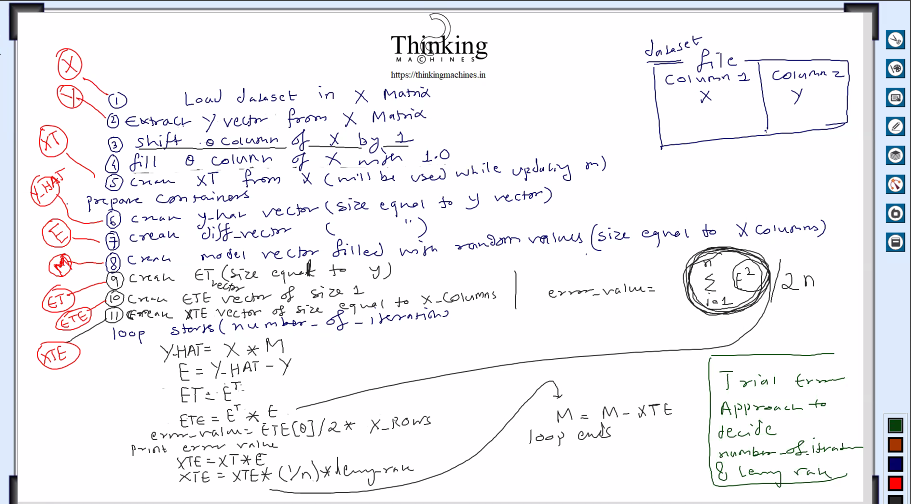 Thinking
MACHINES
https://thinkingmachines.in
dataset file
Column 1 Column 2
X Y
X
Y
XT
Y_HAT
E
M
ET
ETE
XTE
1 Load dataset in X Matrix
2 Extract Y vector from X Matrix
3 shift 0 column of X by 1
4 fill 0 column of X with 1.0
5 creak XT from X (will be used while updating m)
prepare containers
6 creak y-hat vector (size equal to y vector)
7 creak diff_vector ( " )
8 creak model vector filled with random values (size equal to X columns)
9 creak ET vector (size equal to y)
10 creak ETE vector of size 1
11 creak XTE vector of size equal to X_Columns
error_value = n Σ i=1 E² / 2n
loop starts (number_of_iteration)
Y-HAT = X * M
E = Y-HAT - Y
ET = E^T
ETE = E^T * E
error_value = ETE[0]/2 * X_ROWS
print error value
XTE = XT * E
XTE = XTE * (1/n) * lerny rak
M = M - XTE
loop ends
Trial Error
Approach to
decide
number_of_iterat
& lerny rak